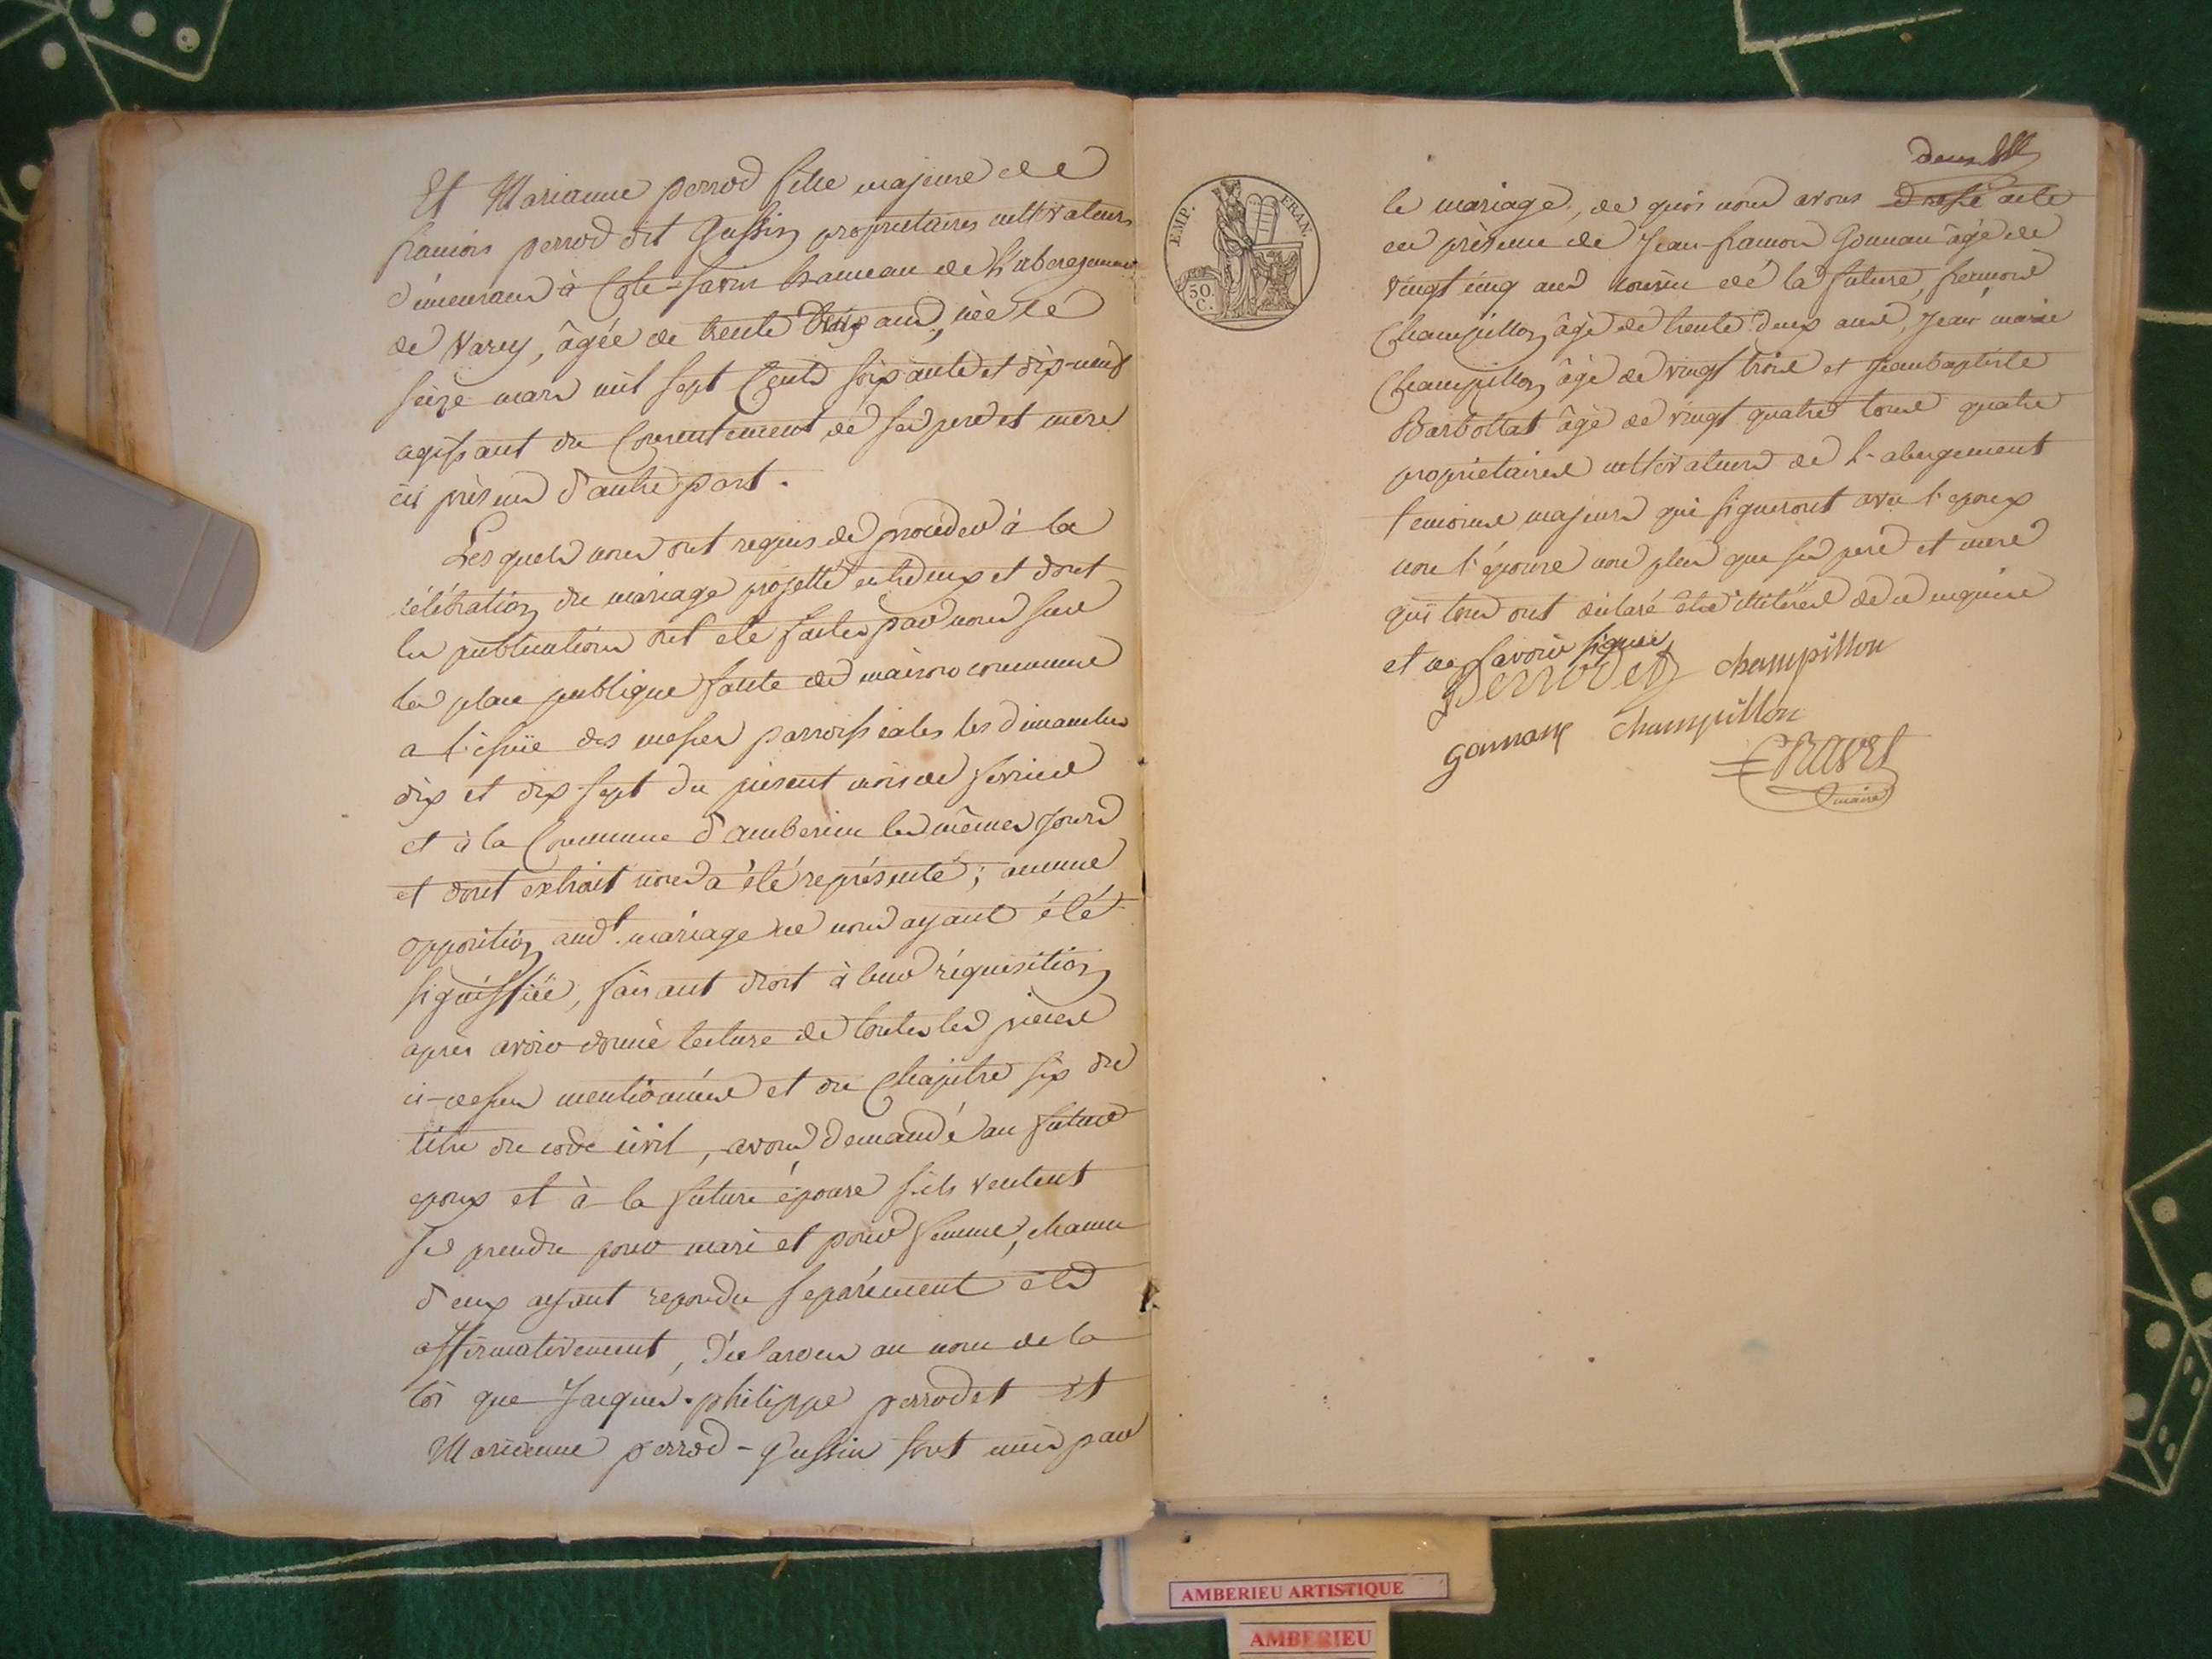 Et Marianne perrod fille majeure de
francois perrod dit Gussin propriétaires cultivateurs
demeurans à Cote-savin hameau de l'abergement
de Varey, âgée de trente ans, née le
seize mars mil sept Cents soixante et dix-neuf
agissant du Consentement de ses pere et mere
ici présens d'autre part.
Lesquels nous ont requis de proceder à la
célébration du mariage projetté entr'eux et dont
les publications ont eté faites par nous sur
la place publique faute de maison commune
a l'issüe des messes parroissiales les dimanches
dix et dix-sept du present mois de fevrier
et à la Commune d'amberieu les mêmes jours
et dont extrait nous a été représenté; aucune
opposition aud.t mariage ne nous ayant été
signiffiée, faisant droit à leur réquisition
après avoir donné lecture de toutes les pieces
ci-dessus mentionnées et du Chapitre six du
titre du code civil, avons demandé au futur
epoux et à la future épouse s'ils veulent
se prendre pour mari et pour femme, chacun
d'eux ayant repondu separément et
affirmativement, déclarons au nom de la
loi que Jacques-philippe perrodet et
Marianne perrod-Gussin sont unis par
deux
EMP. FRAN.
50 C.
le mariage, de quoi nous avons dressé acte
en présence de Jean-francois Gonnan âgé de
vingt cinq ans cousin de la future,
Champillon âgé de trente deux ans, Jean marie
Champillon âgé de vingt trois et Jean baptiste
Barbollat âgé de vingt quatre tous quatre
propriétaires cultivateurs de l'abergement
temoins majeurs qui signeront avec l'epoux
non l'épouse non plus que ses pere et mere
qui tous ont déclaré être illitérés de ce enquis
et ne savoir signer
Perrodet champillon
gonnan champillon
Ravet
maire
AMBERIEU ARTISTIQUE
AMBERIEU